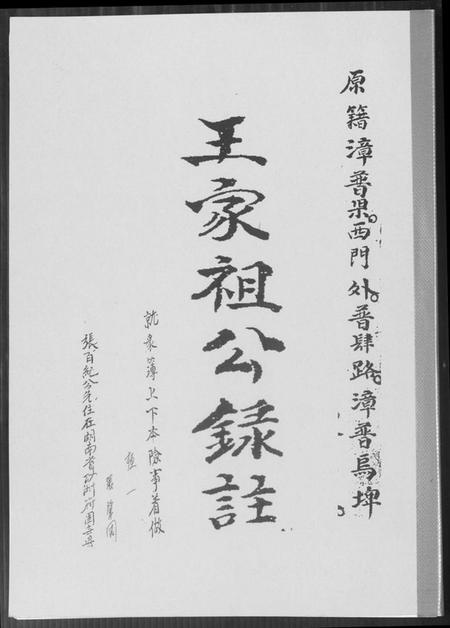 原籍漳普県西門外普肆路漳普烏埤
王家祖公録註
就彔簿上下本除事着做
張百紀公先住在湖南省